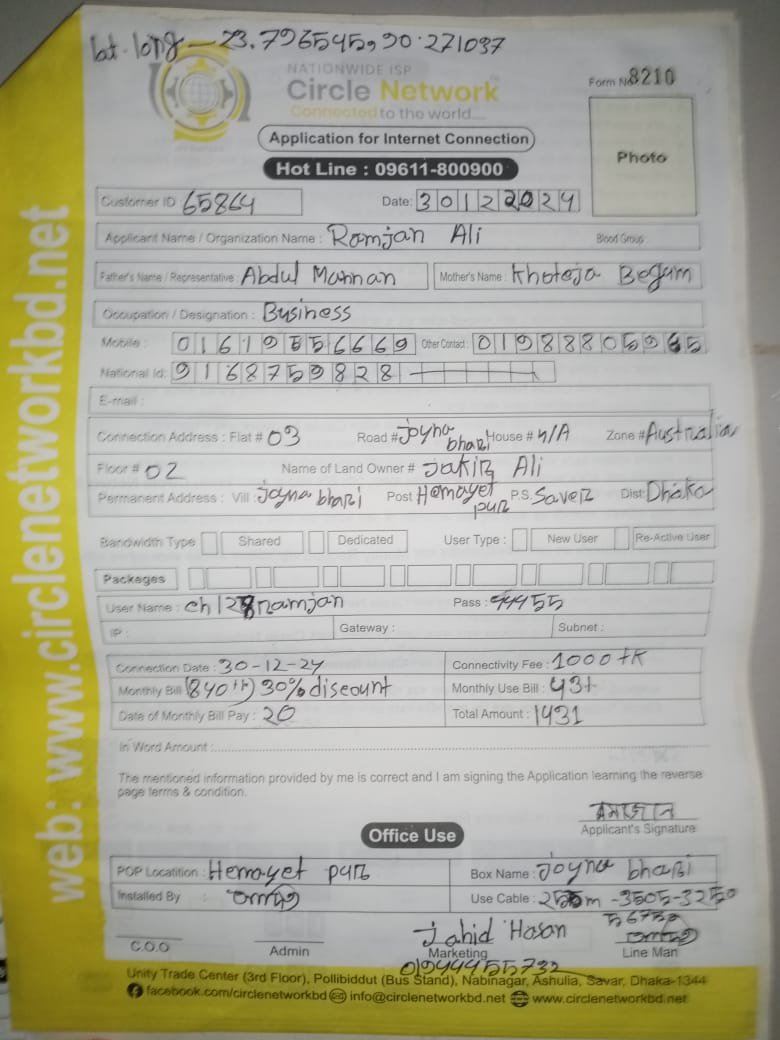 lat. long – 23.796545, 90.271037
NATIONWIDE ISP
Circle Network
Connected to the world....
Form No 8210
Application for Internet Connection
Photo
Hot Line : 09611-800900
Customer ID : 65864 Date: 30122024
Applicant Name / Organization Name : Ramjan Ali Blood Group:
Father's Name / Representative : Abdul Mannan Mother's Name : Khoteja Begum
Occupation / Designation : Business
Mobile : Other Contact :
National Id: 9168759828
E-mail :
Connection Address : Flat # 03 Road # Joyna bhari House # N/A Zone # Australia
Floor # 02 Name of Land Owner # Jakir Ali
Permanent Address : Vill : Joyna bhari Post Hemayet pur P.S. Saver Dist: Dhaka
Bandwidth Type Shared Dedicated User Type : New User Re-Active User
Packeges
User Name : Pass : 44455
IP : Gateway : Subnet :
Connection Date : 30-12-24 Connectivity Fee : 1000 tk
Monthly Bill (840 tk) 30% discount Monthly Use Bill :
Date of Monthly Bill Pay : 20 Total Amount : 1431
In Word Amount :
The mentioned information provided by me is correct and I am signing the Application learning the reverse
page terms & condition.
Applicant's Signature
Office Use
POP Locatition : Hemayet pur Box Name : Joyna bhari
Installed By : Use Cable :
Jahid Hasan
C.O.O Admin Marketing Line Man
01944455732
Unity Trade Center (3rd Floor), Pollibiddut (Bus Stand), Nabinagar, Ashulia, Savar, Dhaka-1344
facebook.com/circlenetworkbd info@circlenetworkbd.net www.circlenetworkbd.net
web: www.circlenetworkbd.net